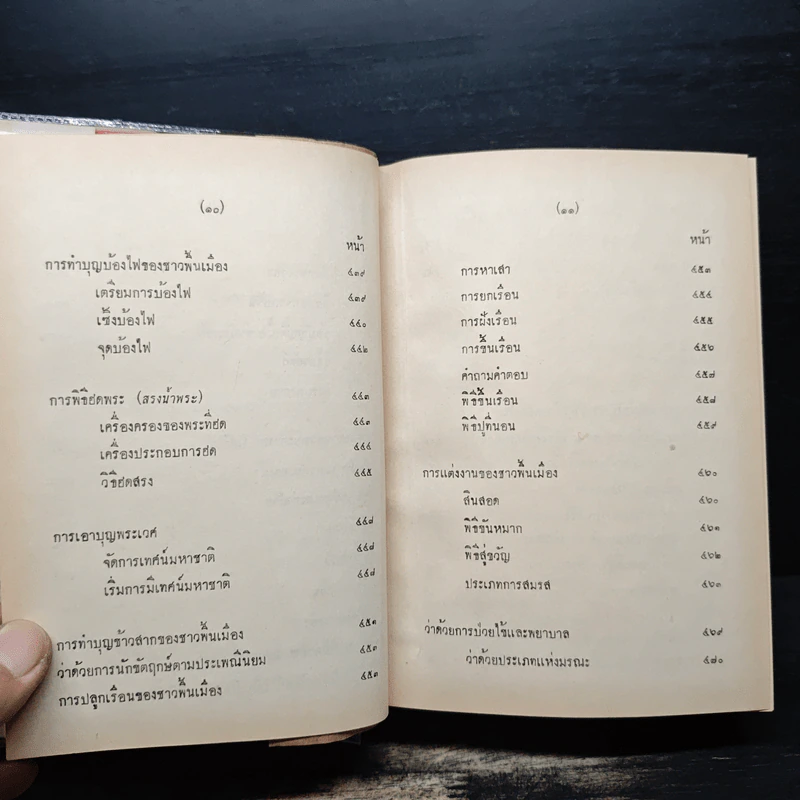 (๑๐)
หน้า
การทำบุญบ้องไฟของชาวพื้นเมือง ๔๓๙
เตรียมการบ้องไฟ ๔๓๙
เซิ้งบ้องไฟ ๔๔๐
จุดบ้องไฟ ๔๔๒
การพิธีฮดพระ (สรงน้ำพระ) ๔๔๓
เครื่องครองของพระที่ฮด ๔๔๓
เครื่องประกอบการฮด ๔๔๔
วิธีฮดสรง ๔๔๕
การเอาบุญพระเวศ ๔๔๗
จัดการเทศน์มหาชาติ ๔๔๘
เริ่มการมีเทศน์มหาชาติ ๔๔๘
การทำบุญข้าวสากของชาวพื้นเมือง ๔๕๑
ว่าด้วยการนักขัตฤกษ์ตามประเพณีนิยม ๔๕๓
การปลูกเรือนของชาวพื้นเมือง ๔๕๓
(๑๑)
หน้า
การหาเสา ๔๕๓
การยกเรือน ๔๕๔
การฝั่งเรือน ๔๕๕
การขึ้นเรือน ๔๕๖
คำถามคำตอบ ๔๕๗
พิธีขึ้นเรือน ๔๕๘
พิธีปูที่นอน ๔๕๙
การแต่งงานของชาวพื้นเมือง ๔๖๐
สินสอด ๔๖๐
พิธีขันหมาก ๔๖๑
พิธีสู่ขวัญ ๔๖๒
ประเภทการสมรส ๔๖๓
ว่าด้วยการป่วยไข้และพยาบาล ๔๖๙
ว่าด้วยประเภทแห่งมรณะ ๔๗๐